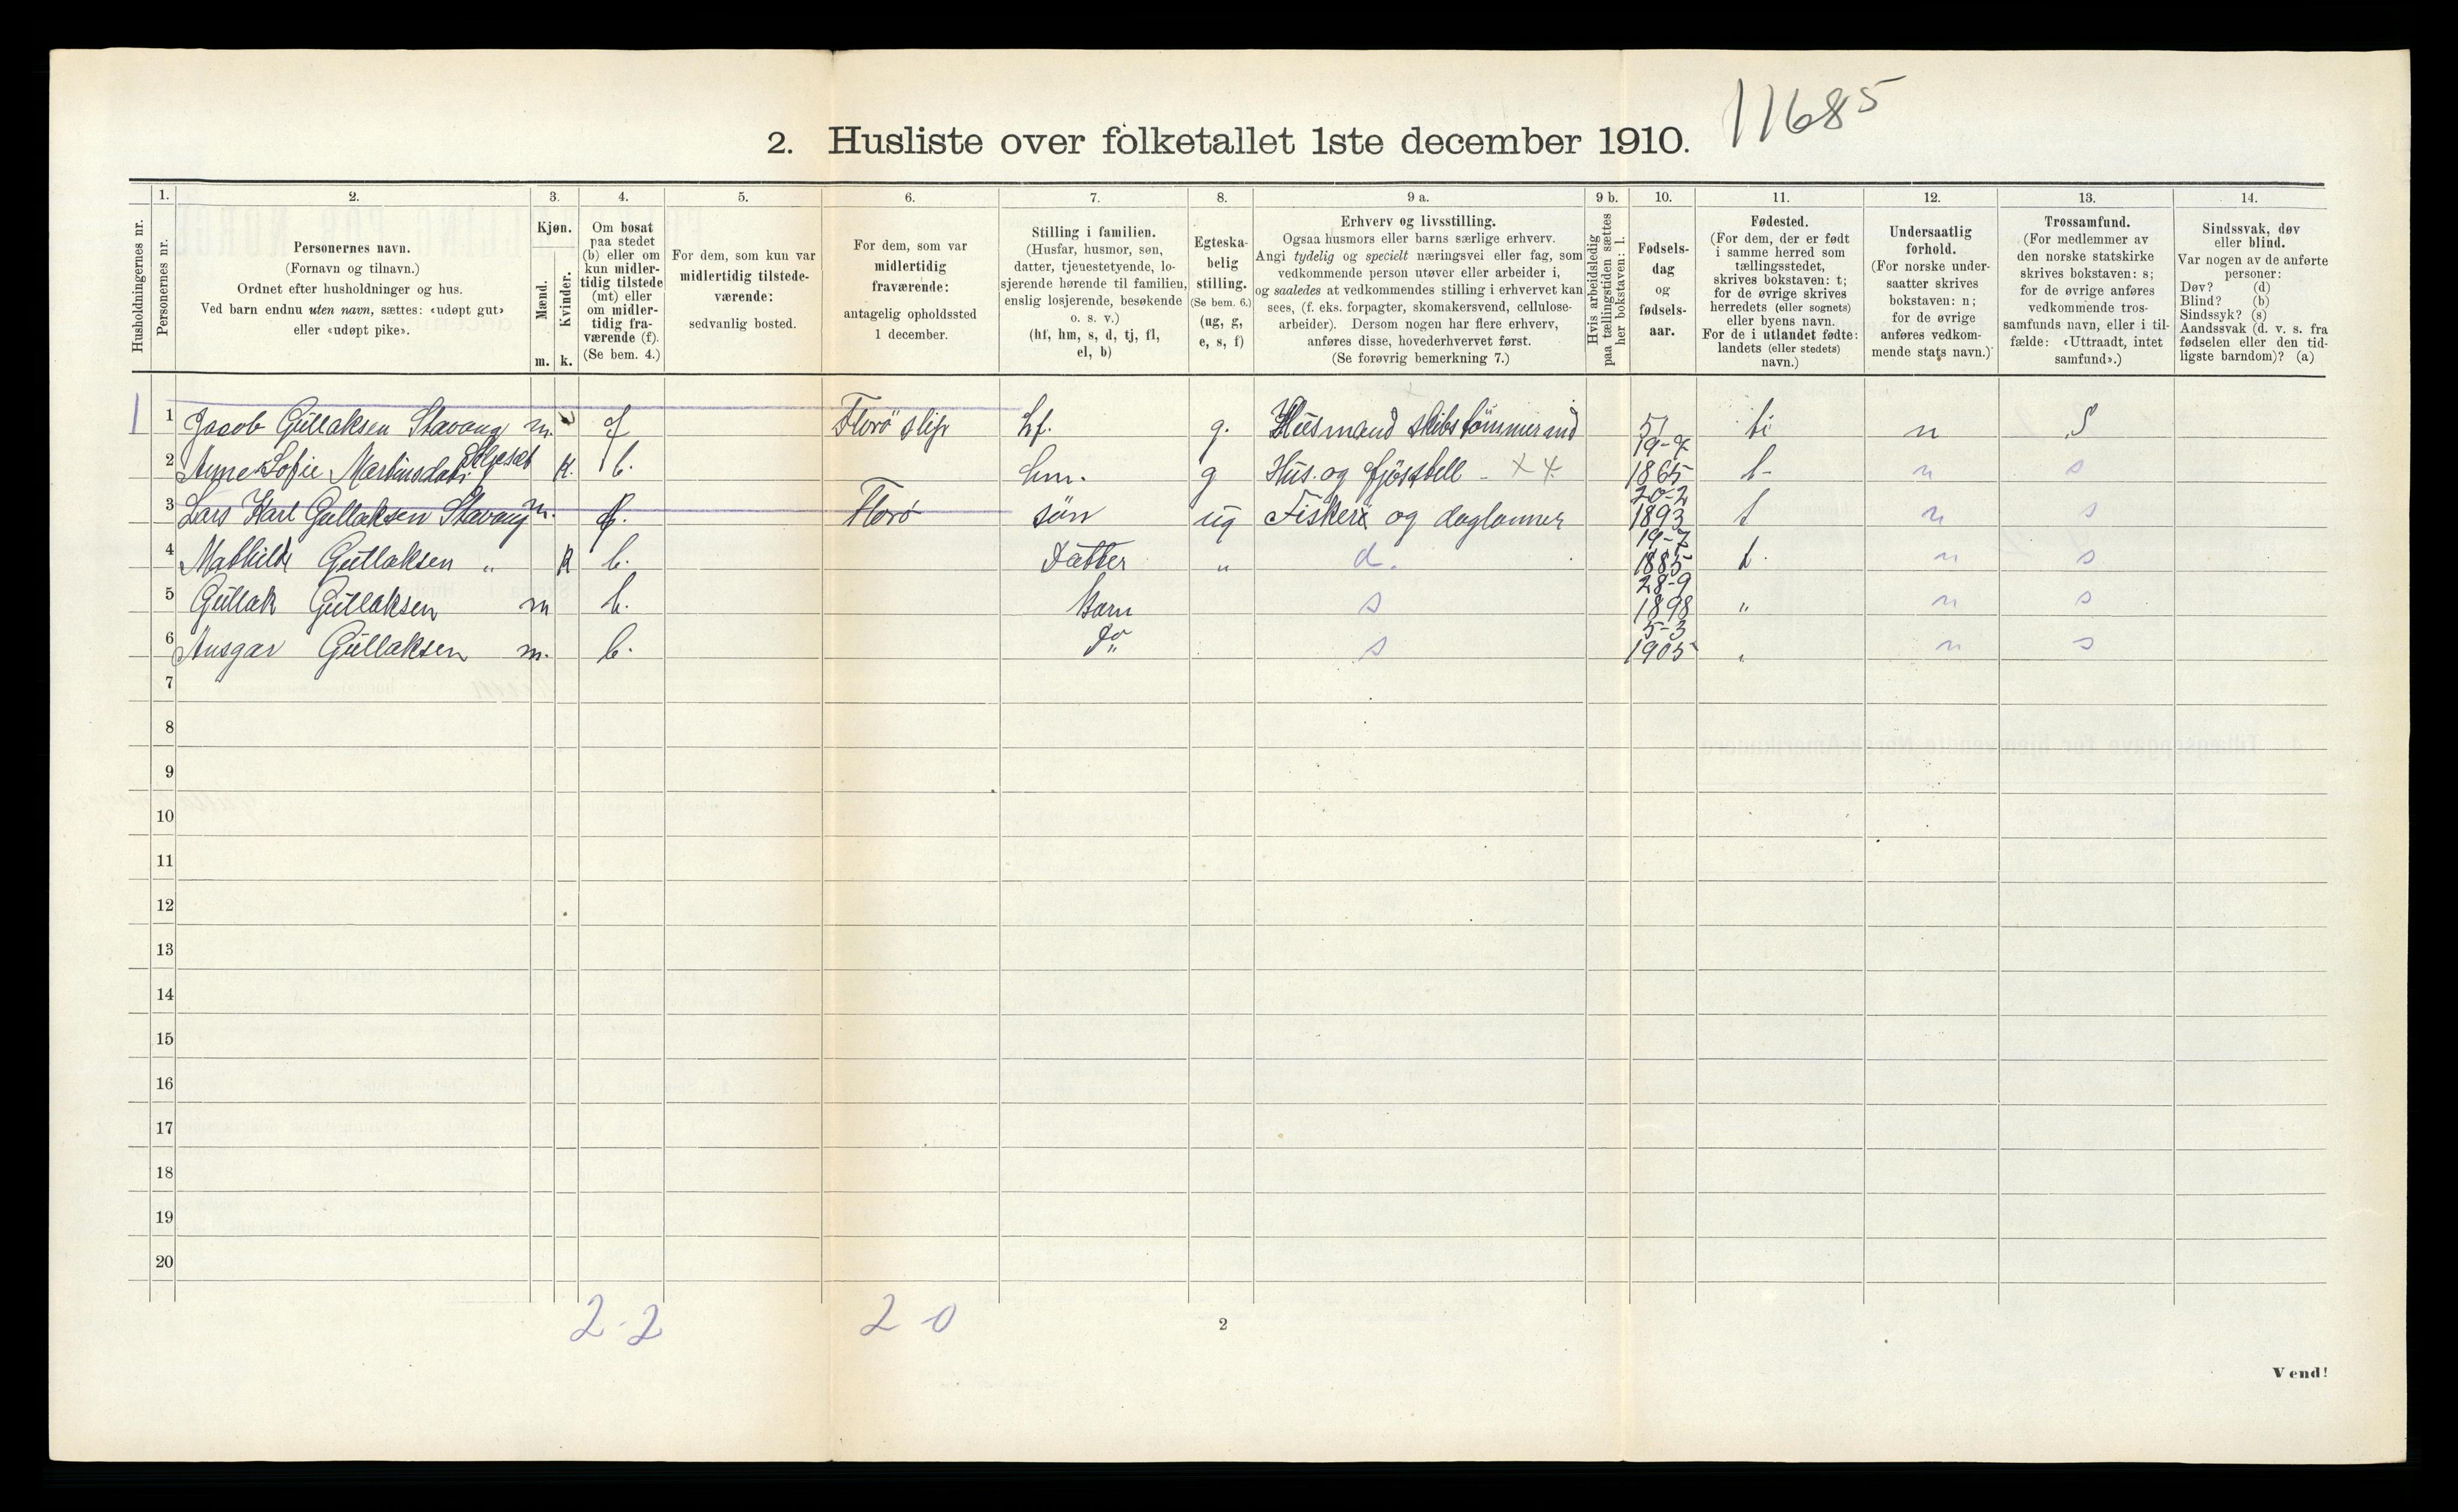 11685
2. Husliste over folketallet 1ste december 1910.
Husholdningernes nr.
1. Personernes nr.
2. Personernes navn. (Fornavn og tilnavn.) Ordnet efter husholdninger og hus. Ved barn endnu uten navn, sættes: «udøpt gut» eller «udøpt pike».
3. Kjøn. Mænd. m. Kvinder. k.
4. Om bosat paa stedet (b) eller om kun midlertidig tilstede (mt) eller om midlertidig fraværende (f). (Se bem. 4.)
5. For dem, som kun var midlertidig tilstedeværende: sedvanlig bosted.
6. For dem, som var midlertidig fraværende: antagelig opholdssted 1 december.
7. Stilling i familien. (Husfar, husmor, søn, datter, tjenestetyende, losjerende hørende til familien, enslig losjerende, besøkende o. s. v.) (hf, hm, s, d, tj, fl, el, b)
8. Egteskabelig stilling. (Se bem. 6.) (ug, g, e, s, f)
9 a. Erhverv og livsstilling. Ogsaa husmors eller barns særlige erhverv. Angi tydelig og specielt næringsvei eller fag, som vedkommende person utøver eller arbeider i, og saaledes at vedkommendes stilling i erhvervet kan sees, (f. eks. forpagter, skomakersvend, cellulosearbeider). Dersom nogen har flere erhverv, anføres disse, hovederhvervet først. (Se forøvrig bemerkning 7.)
9 b. Hvis arbeidsledig paa tællingstiden sættes her bokstaven: l.
10. Fødselsdag og fødselsaar.
11. Fødested. (For dem, der er født i samme herred som tællingsstedet, skrives bokstaven: t; for de øvrige skrives herredets (eller sognets) eller byens navn. For de i utlandet fødte: landets (eller stedets) navn.)
12. Undersaatlig forhold. (For norske undersaatter skrives bokstaven: n; for de øvrige anføres vedkommende stats navn.)
13. Trossamfund. (For medlemmer av den norske statskirke skrives bokstaven: s; for de øvrige anføres vedkommende trossamfunds navn, eller i tilfælde: «Uttraadt, intet samfund».)
14. Sindssvak, døv eller blind. Var nogen av de anførte personer: Døv? (d) Blind? (b) Sindssyk? (s) Aandssvak (d. v. s. fra fødselen eller den tidligste barndom)? (a)
1 1 Jacob Gullaksen Stavang m. f Florö slip hf. g. Husmand skibstömmermand 57 ti n S
2 Anne Sofie Martinsdatr Solheset k. b. hm. g Hus. og fjösstell - x 4 19-9 1865 t- n s
3 Lars Karl Gullaksen Stavang m. f. Florö sön ug Fisker og daglonner 20-2 1893 t n s
4 Mathilde Gullaksen " k b. Datter " d. 19-7 1885 t. n s
5 Gullak Gullaksen m b. Barn s 28-9 1898 " n s
6 Ansgar Gullaksen m. b. Do " s 5-3 1905 " n s
7
8
9
10
11
12
13
14
15
16
17
18
19
20
2-2 2 0
2
Vend!